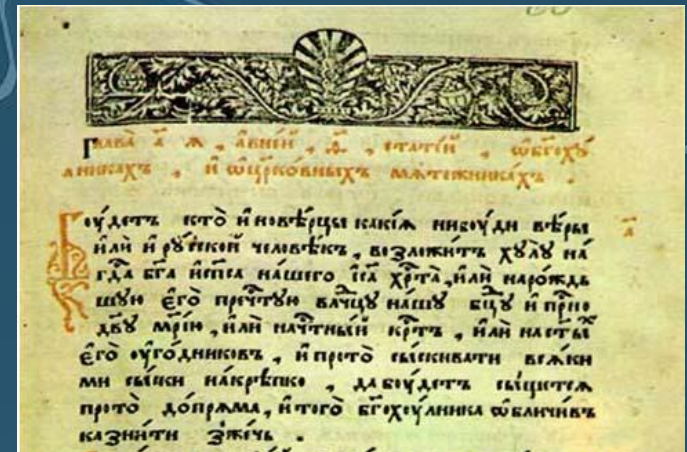 Глава̀ а҃ ѧ , авне́й , ѳ҃ , стате́й , ѡ҆бг҃оху
лникахъ , и҆ ѡ҆цр҃ко́вныхъ мѧте́жникахъ .
Боу́детъ кто̀ и҆новѣ́рцы какі́ѧ нибоу́ди вѣ́ры
и҆лѝ и҆ рꙋ́ской человѣ́къ , возложи́тъ хꙋлꙋ̀ на́
гд҃а бг҃а и҆ сп҃са на́шего і҆с҃а хрⷭ҇та̀ , и҆лѝ наро́ждь
шꙋю є҆го̀ пречⷭ҇тꙋю влⷣчцꙋ на́шꙋ бцⷣꙋ и҆ приⷭ҇но
дв҃ꙋ мр҃і́ю , и҆лѝ на чⷭ҇тны́й крⷭ҇тъ , и҆лѝ на ст҃ы́хъ
є҆го̀ оу҆го́дниковъ , и҆ прото̀ сы́скивати всѧ́ки
ми сы́ски на́крѣпко , да боу́детъ сы́щетсѧ
прото̀ до́прѧма , и҆ того̀ бг҃охоу́лника ѡ҆бличи́въ
казни́ти зже́чь .
а҃